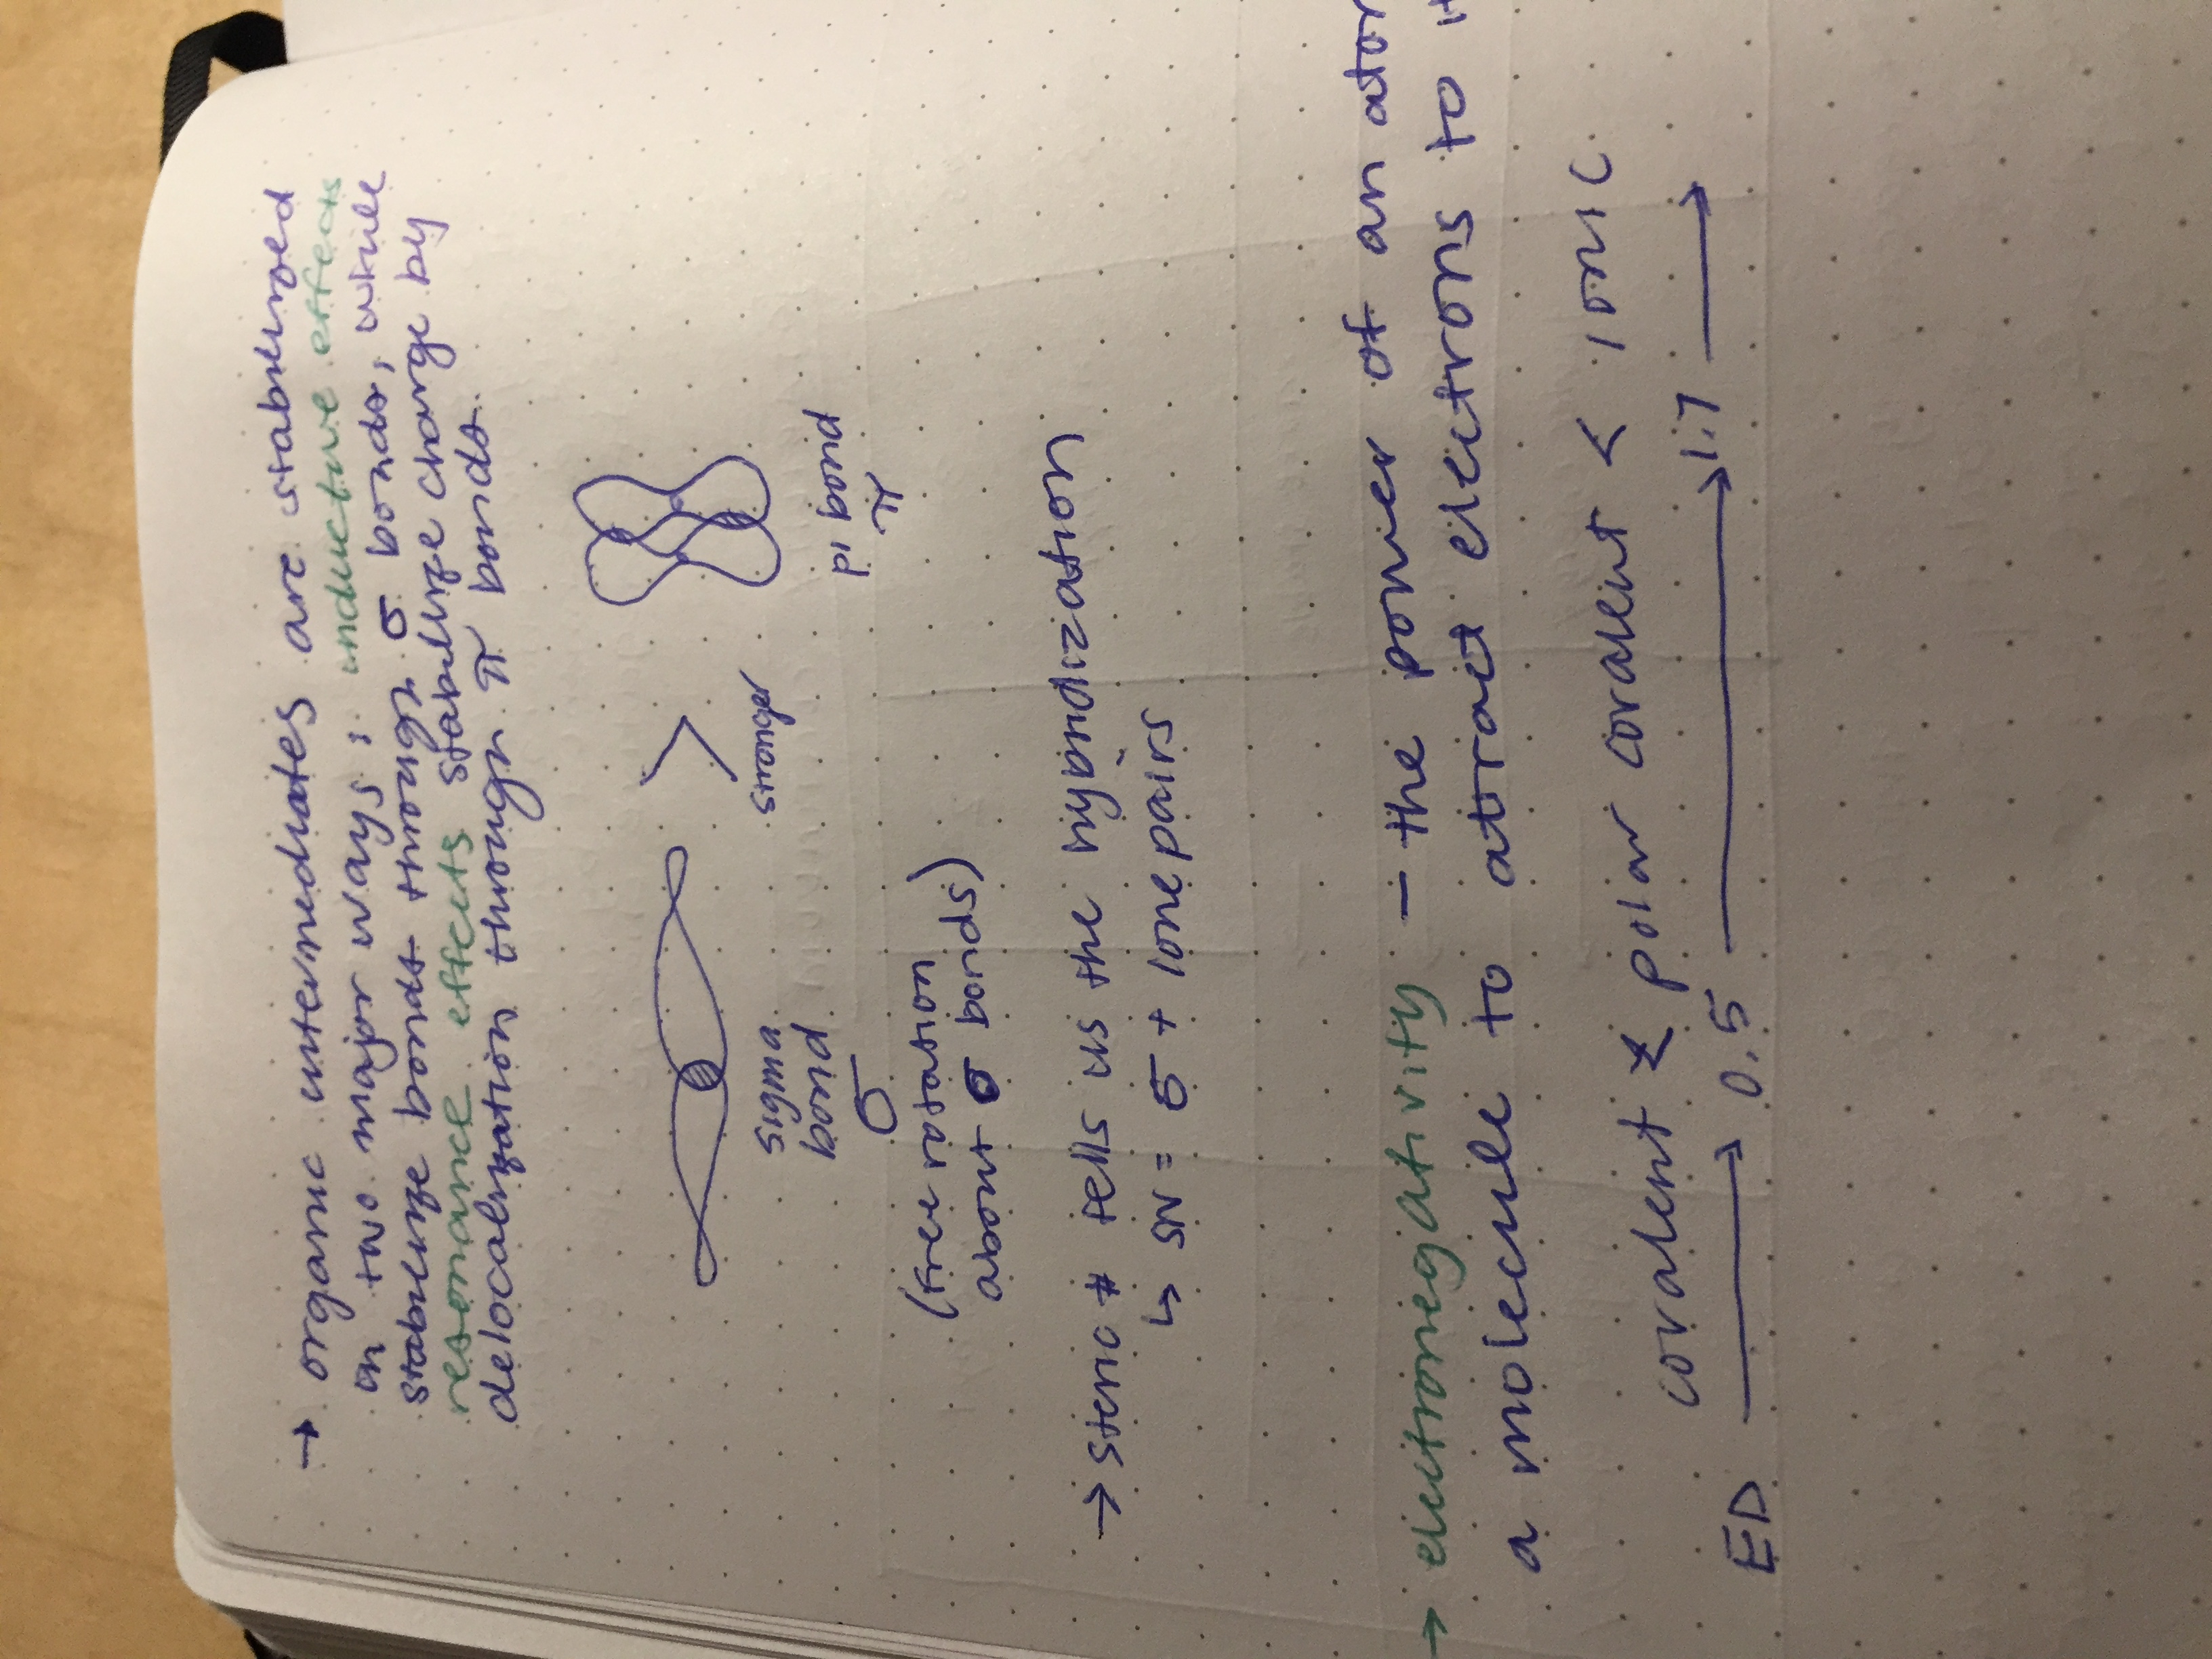 → organic intermediates are stabilized
in two major ways: inductive effects
stabilize bonds through σ bonds, while
resonance effects stabilize charge by
delocalization through π bonds.
>
stronger
sigma
bond
σ
(free rotation
about σ bonds)
pi bond
π
→ steric # tells us the hybridization
↳ SN = σ + lone pairs
→ electronegativity — the power of an ato
a molecule to attract electrons to it
covalent < polar covalent < ionic
ED → 0.5 → 1.7 →